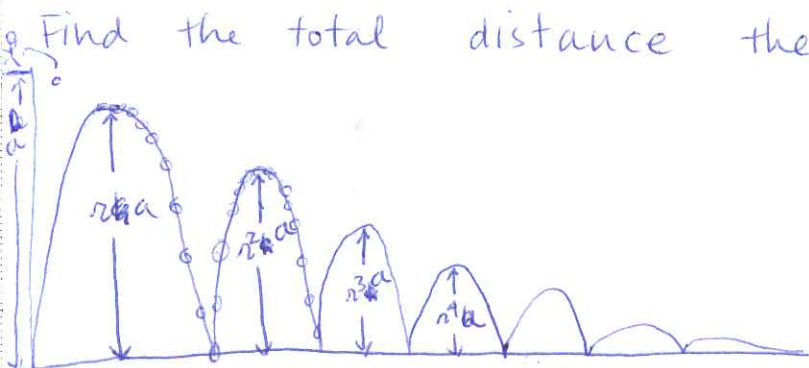 Find the total distance the
a
ra
r²a
r³a
r⁴a